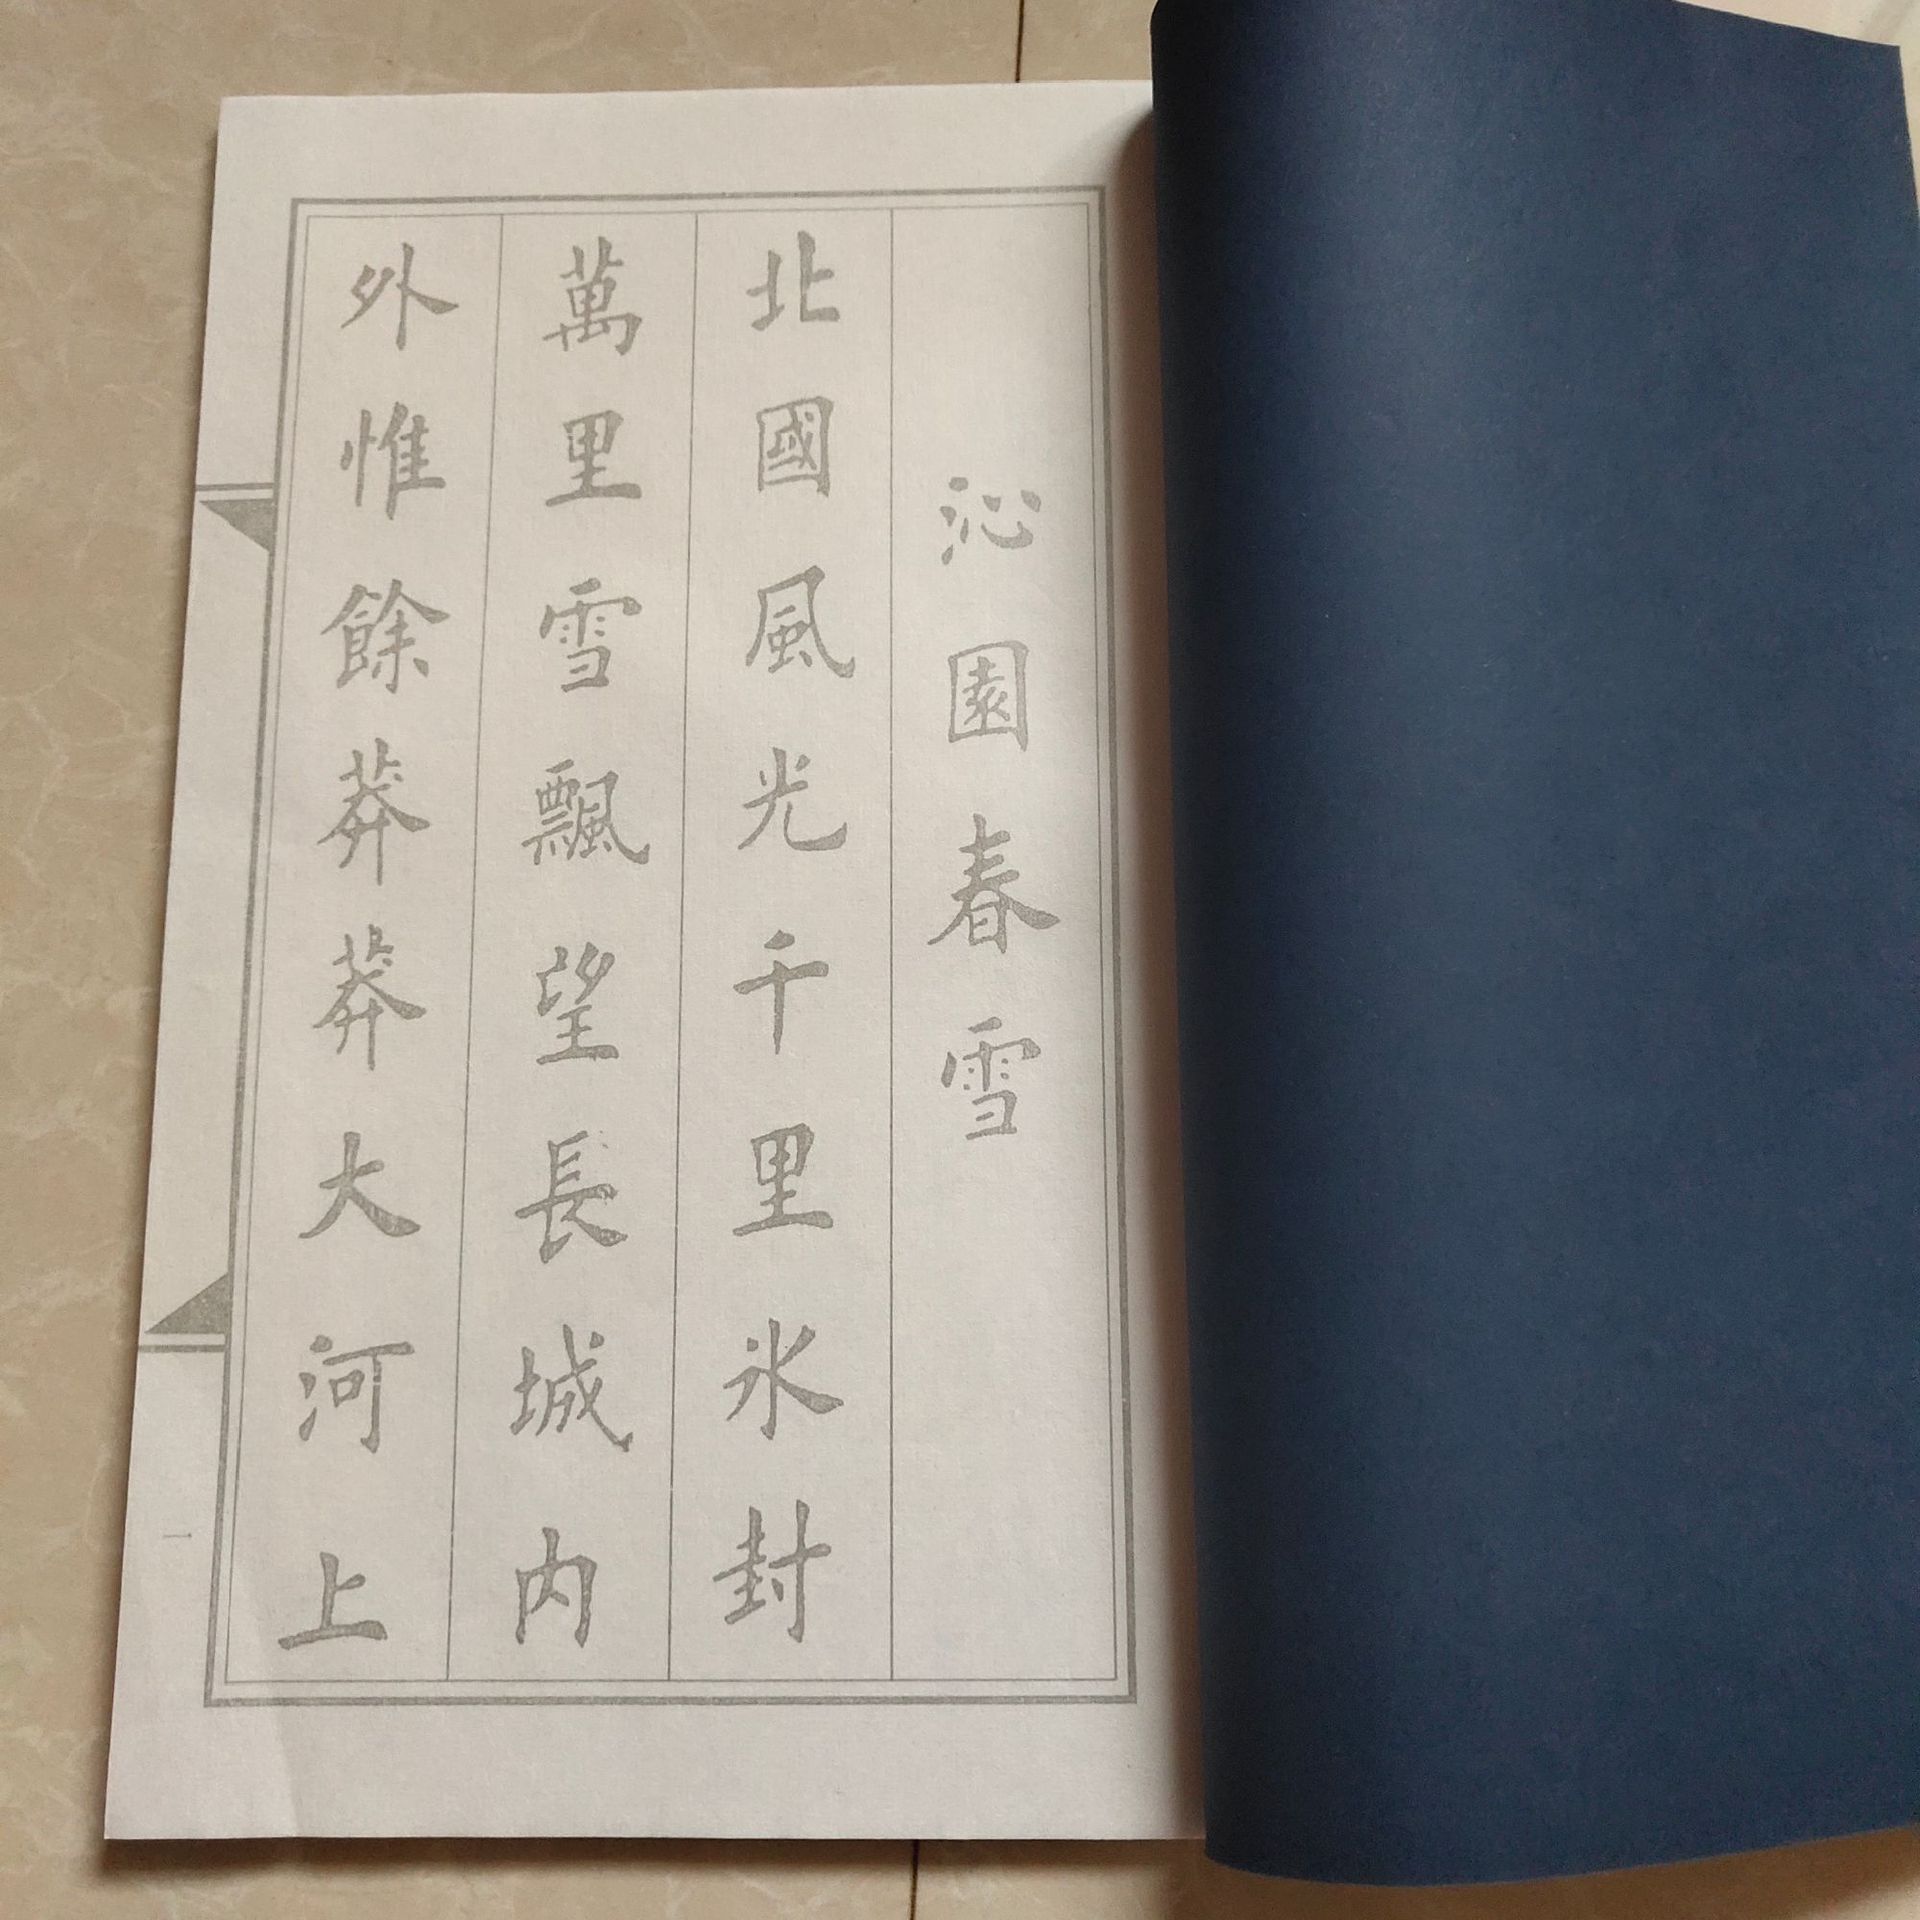 沁園春雪
北國風光千里氷封
萬里雪飄望長城内
外惟餘莽莽大河上
一